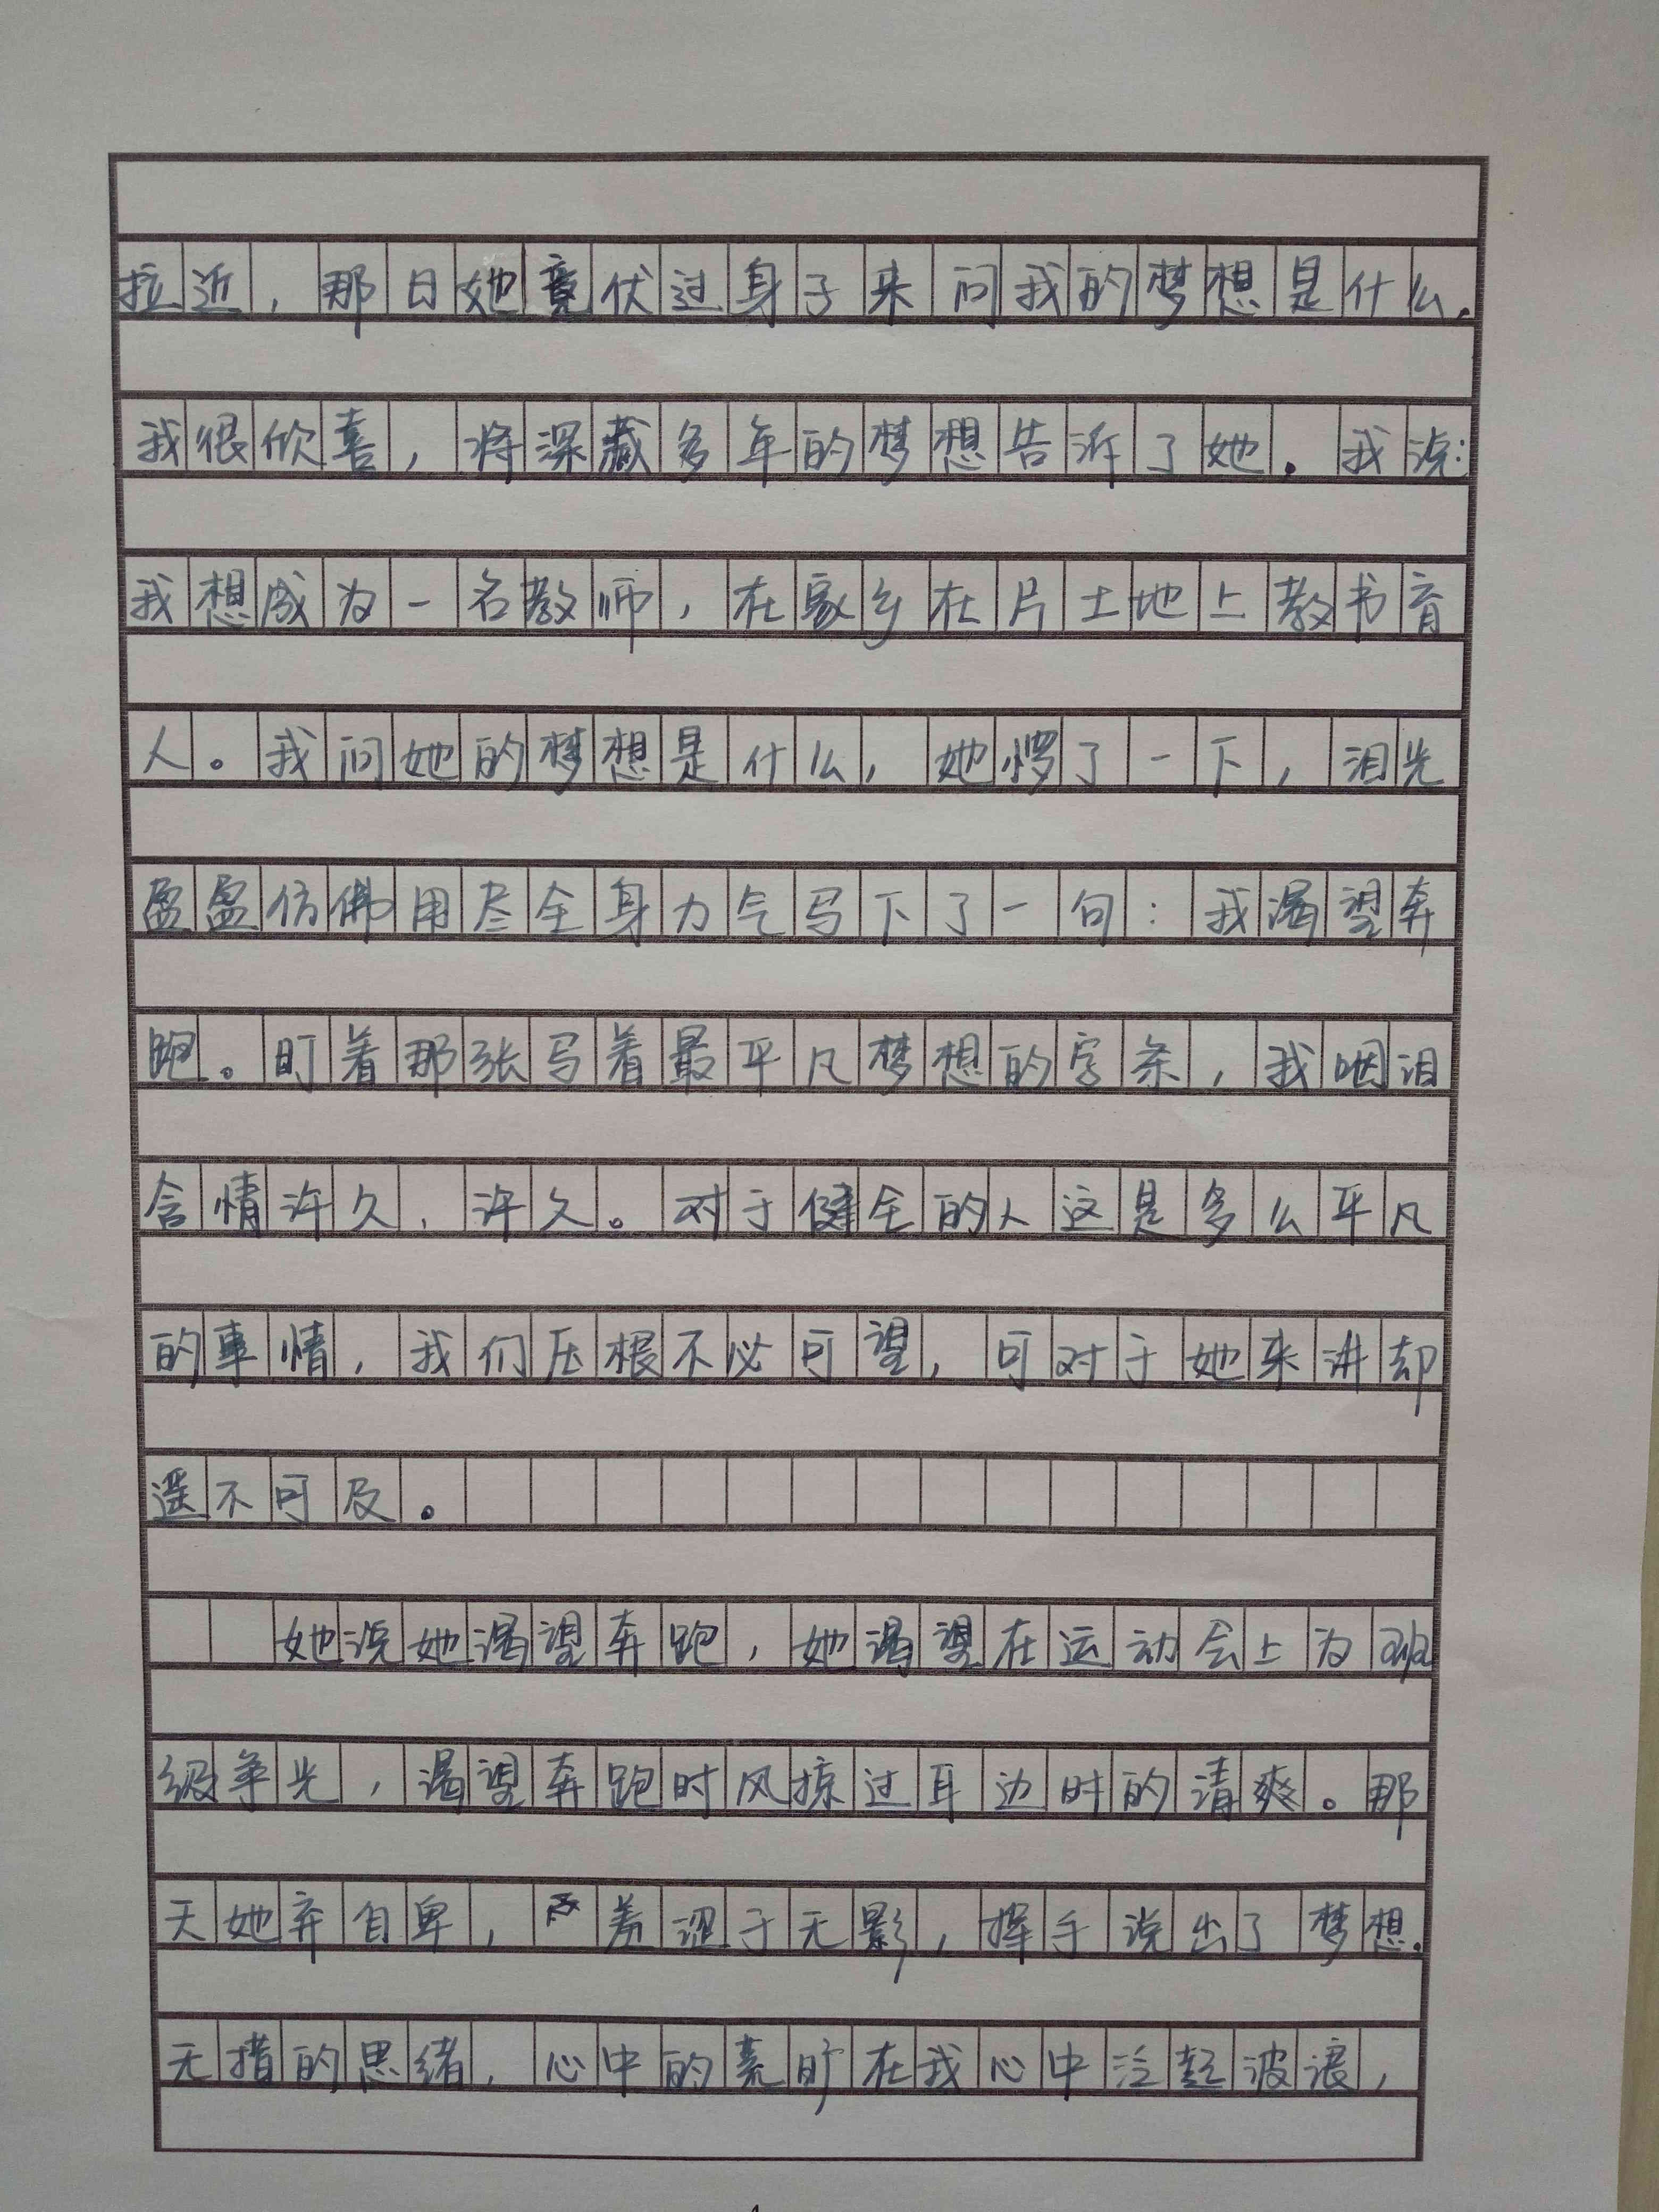 拉近，那日她竟伏过身子来问我的梦想是什么。
我很欣喜，将深藏多年的梦想告诉了她。我说：
我想成为一名教师，在家乡在片土地上教书育
人。我问她的梦想是什么，她愣了一下，泪光
盈盈仿佛用尽全身力气写下了一句：我渴望奔
跑。盯着那张写着最平凡梦想的字条，我咽泪
含情许久，许久。对于健全的人这是多么平凡
的事情，我们压根不必可望，可对于她来讲却
遥不可及。
她说她渴望奔跑，她渴望在运动会上为班
级争光，渴望奔跑时风掠过耳边时的清爽。那
天她弃自卑，羞涩于无影，挥手说出了梦想。
无措的思绪，心中的亮旷在我心中泛起波浪，